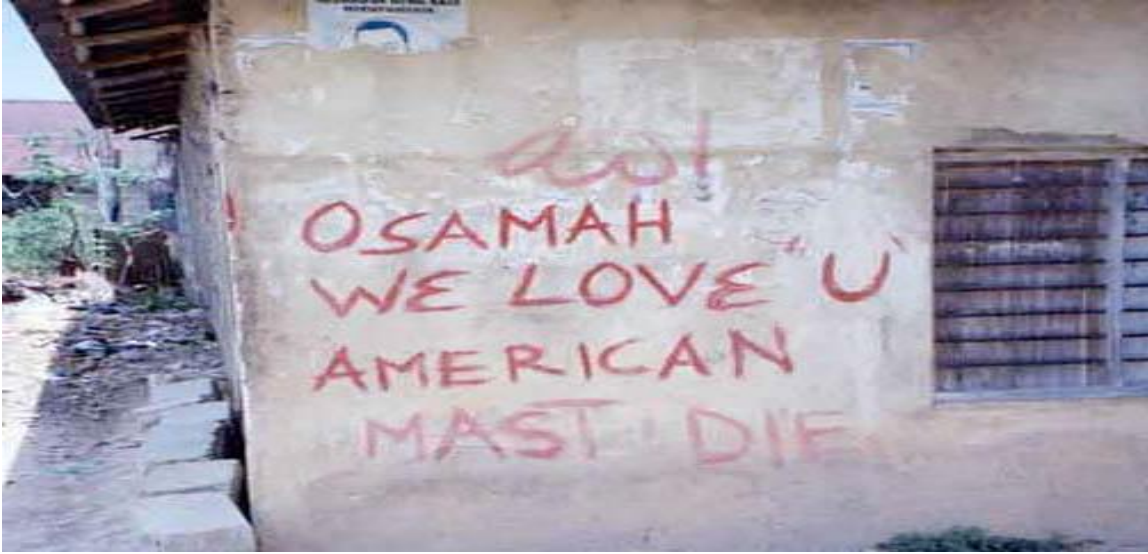 OSAMAH
WE LOVE "U"
AMERICAN
MAST DIE